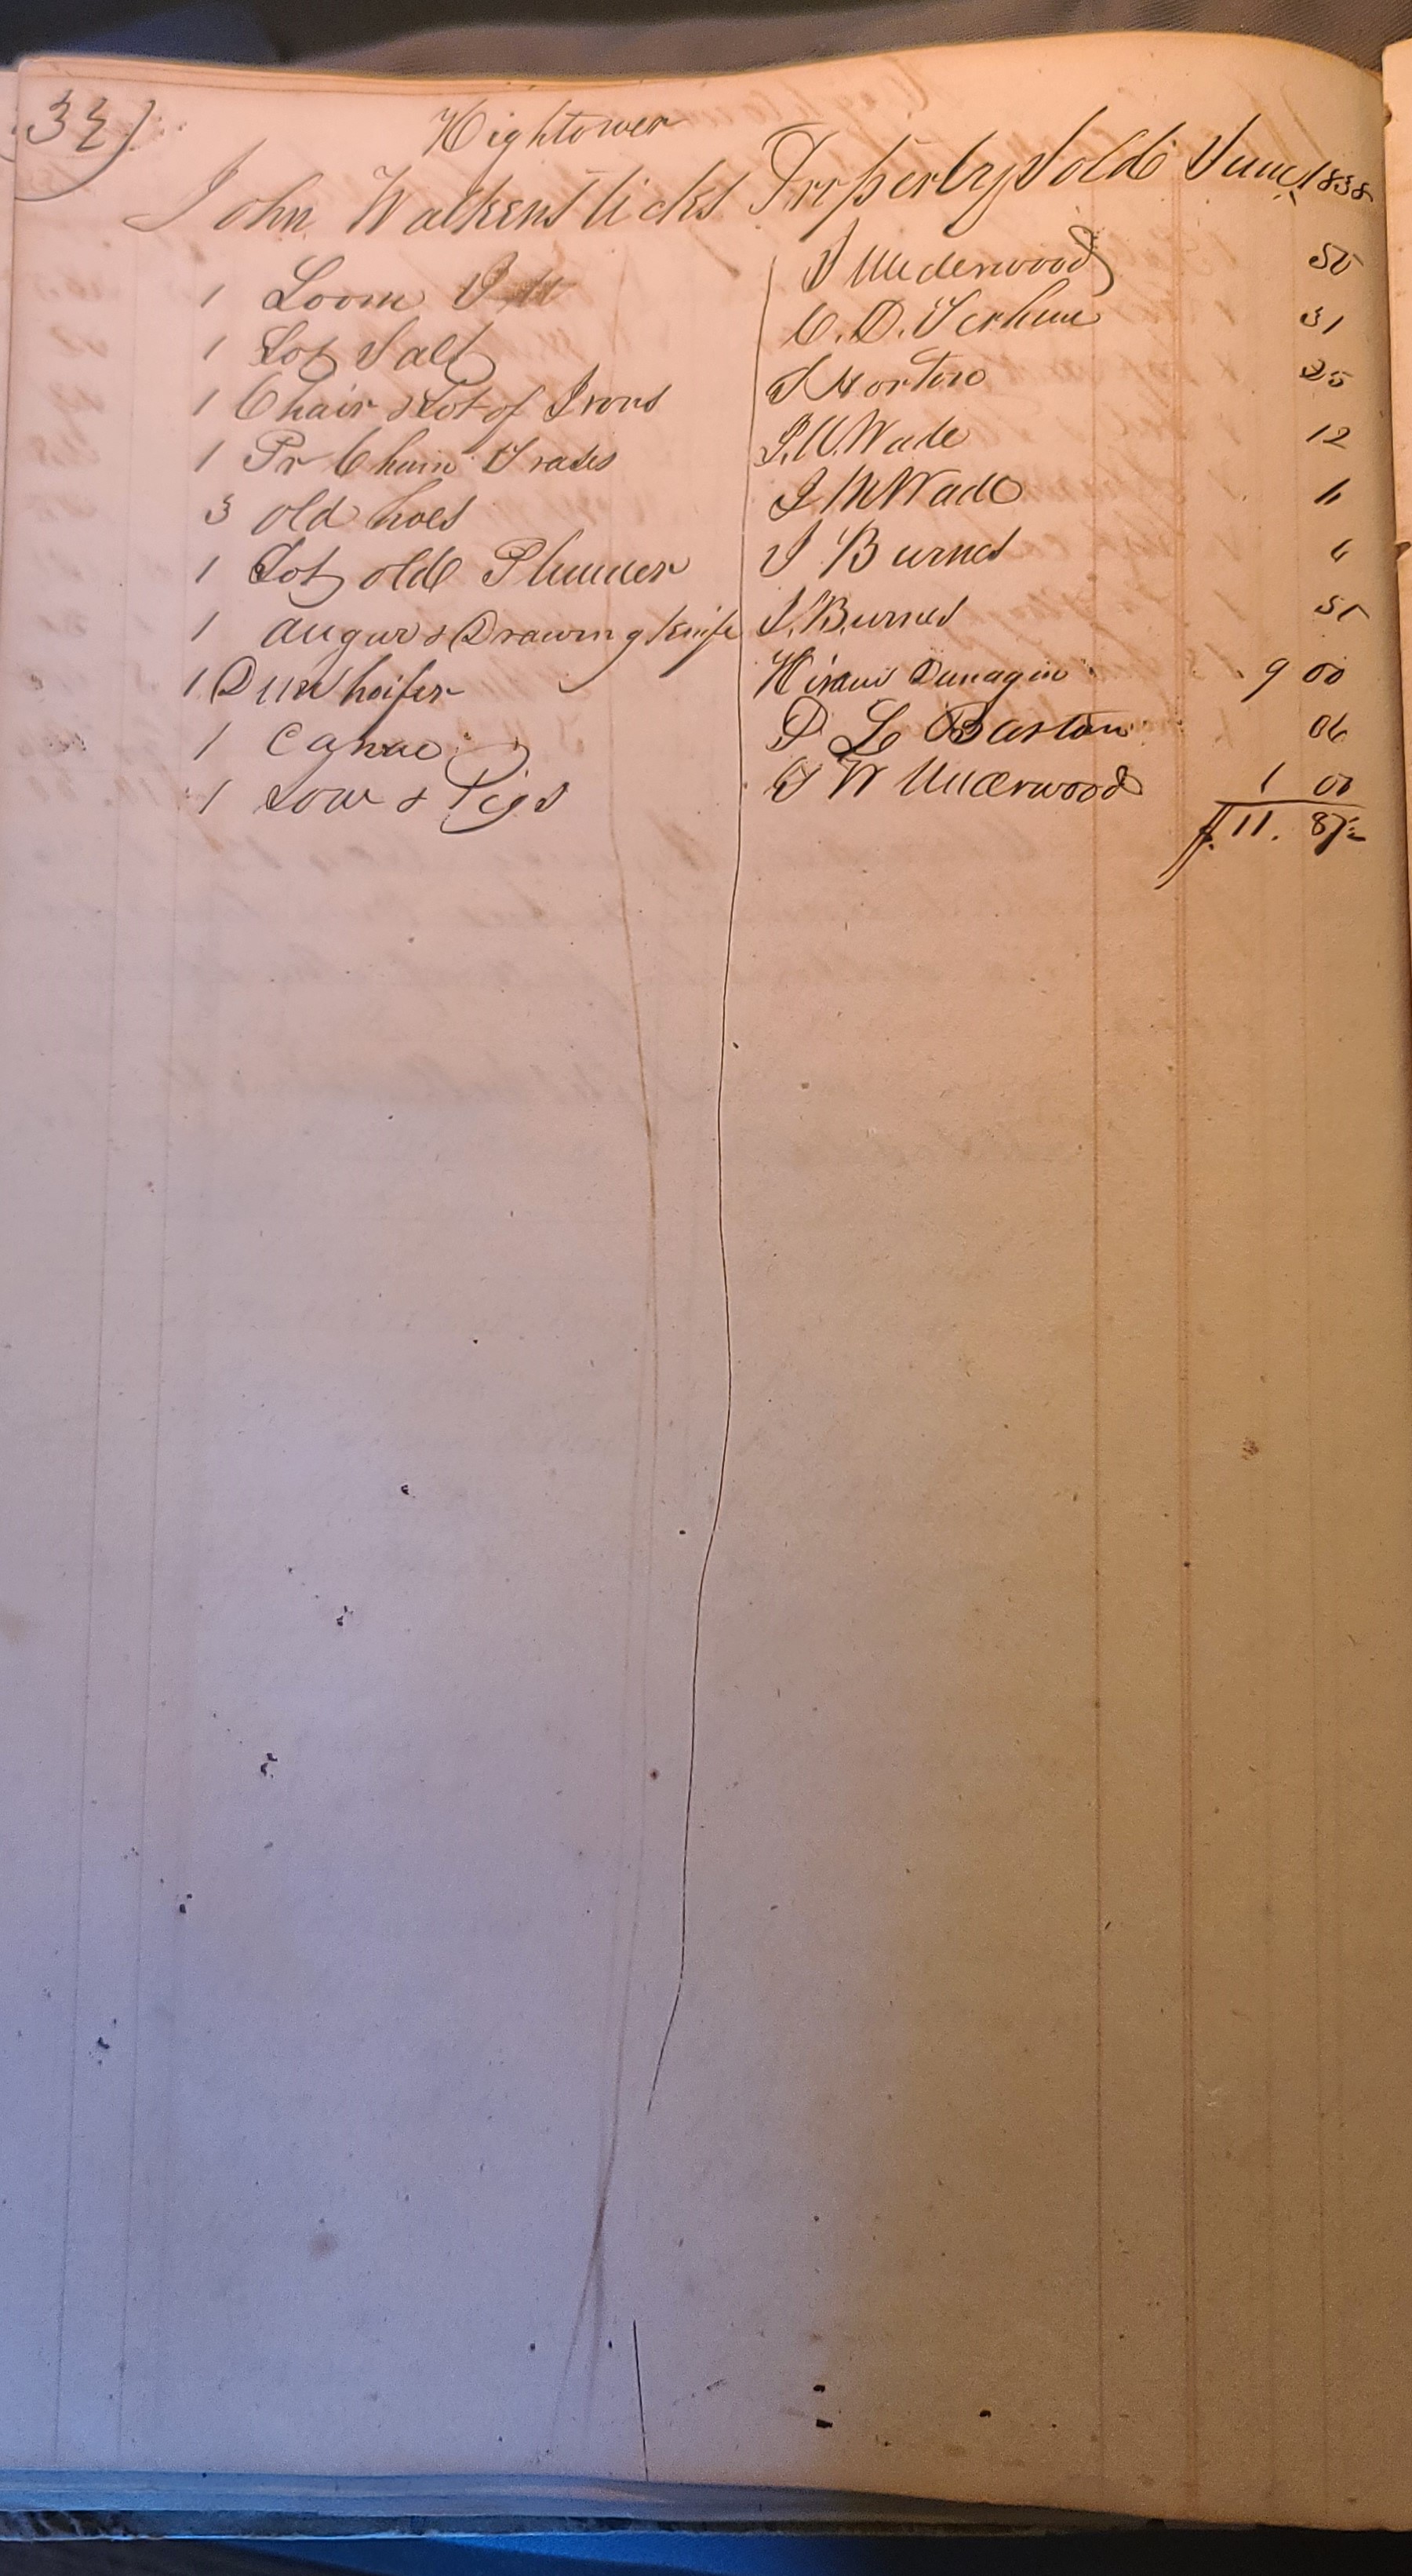 32)
Hightower
John Walkensticks Property Sold June, 1838
1 Loom J Underwood 50
1 Lot Salt C. D. Terhune 31
1 Chair & Lot of Irons J Horton 25
1 Pr Chain Traces J. M. Wade 12
3 old hoes J M Wade 6
1 Lot old Plunder J Burnes 6
1 augur & Drawing Knife J. Burnes 51
1 Dun heifer Hiram Dunagin 9 00
1 Canoe D L Baston 06
1 Sow & Pigs J W Underwood 1 00
$11. 87